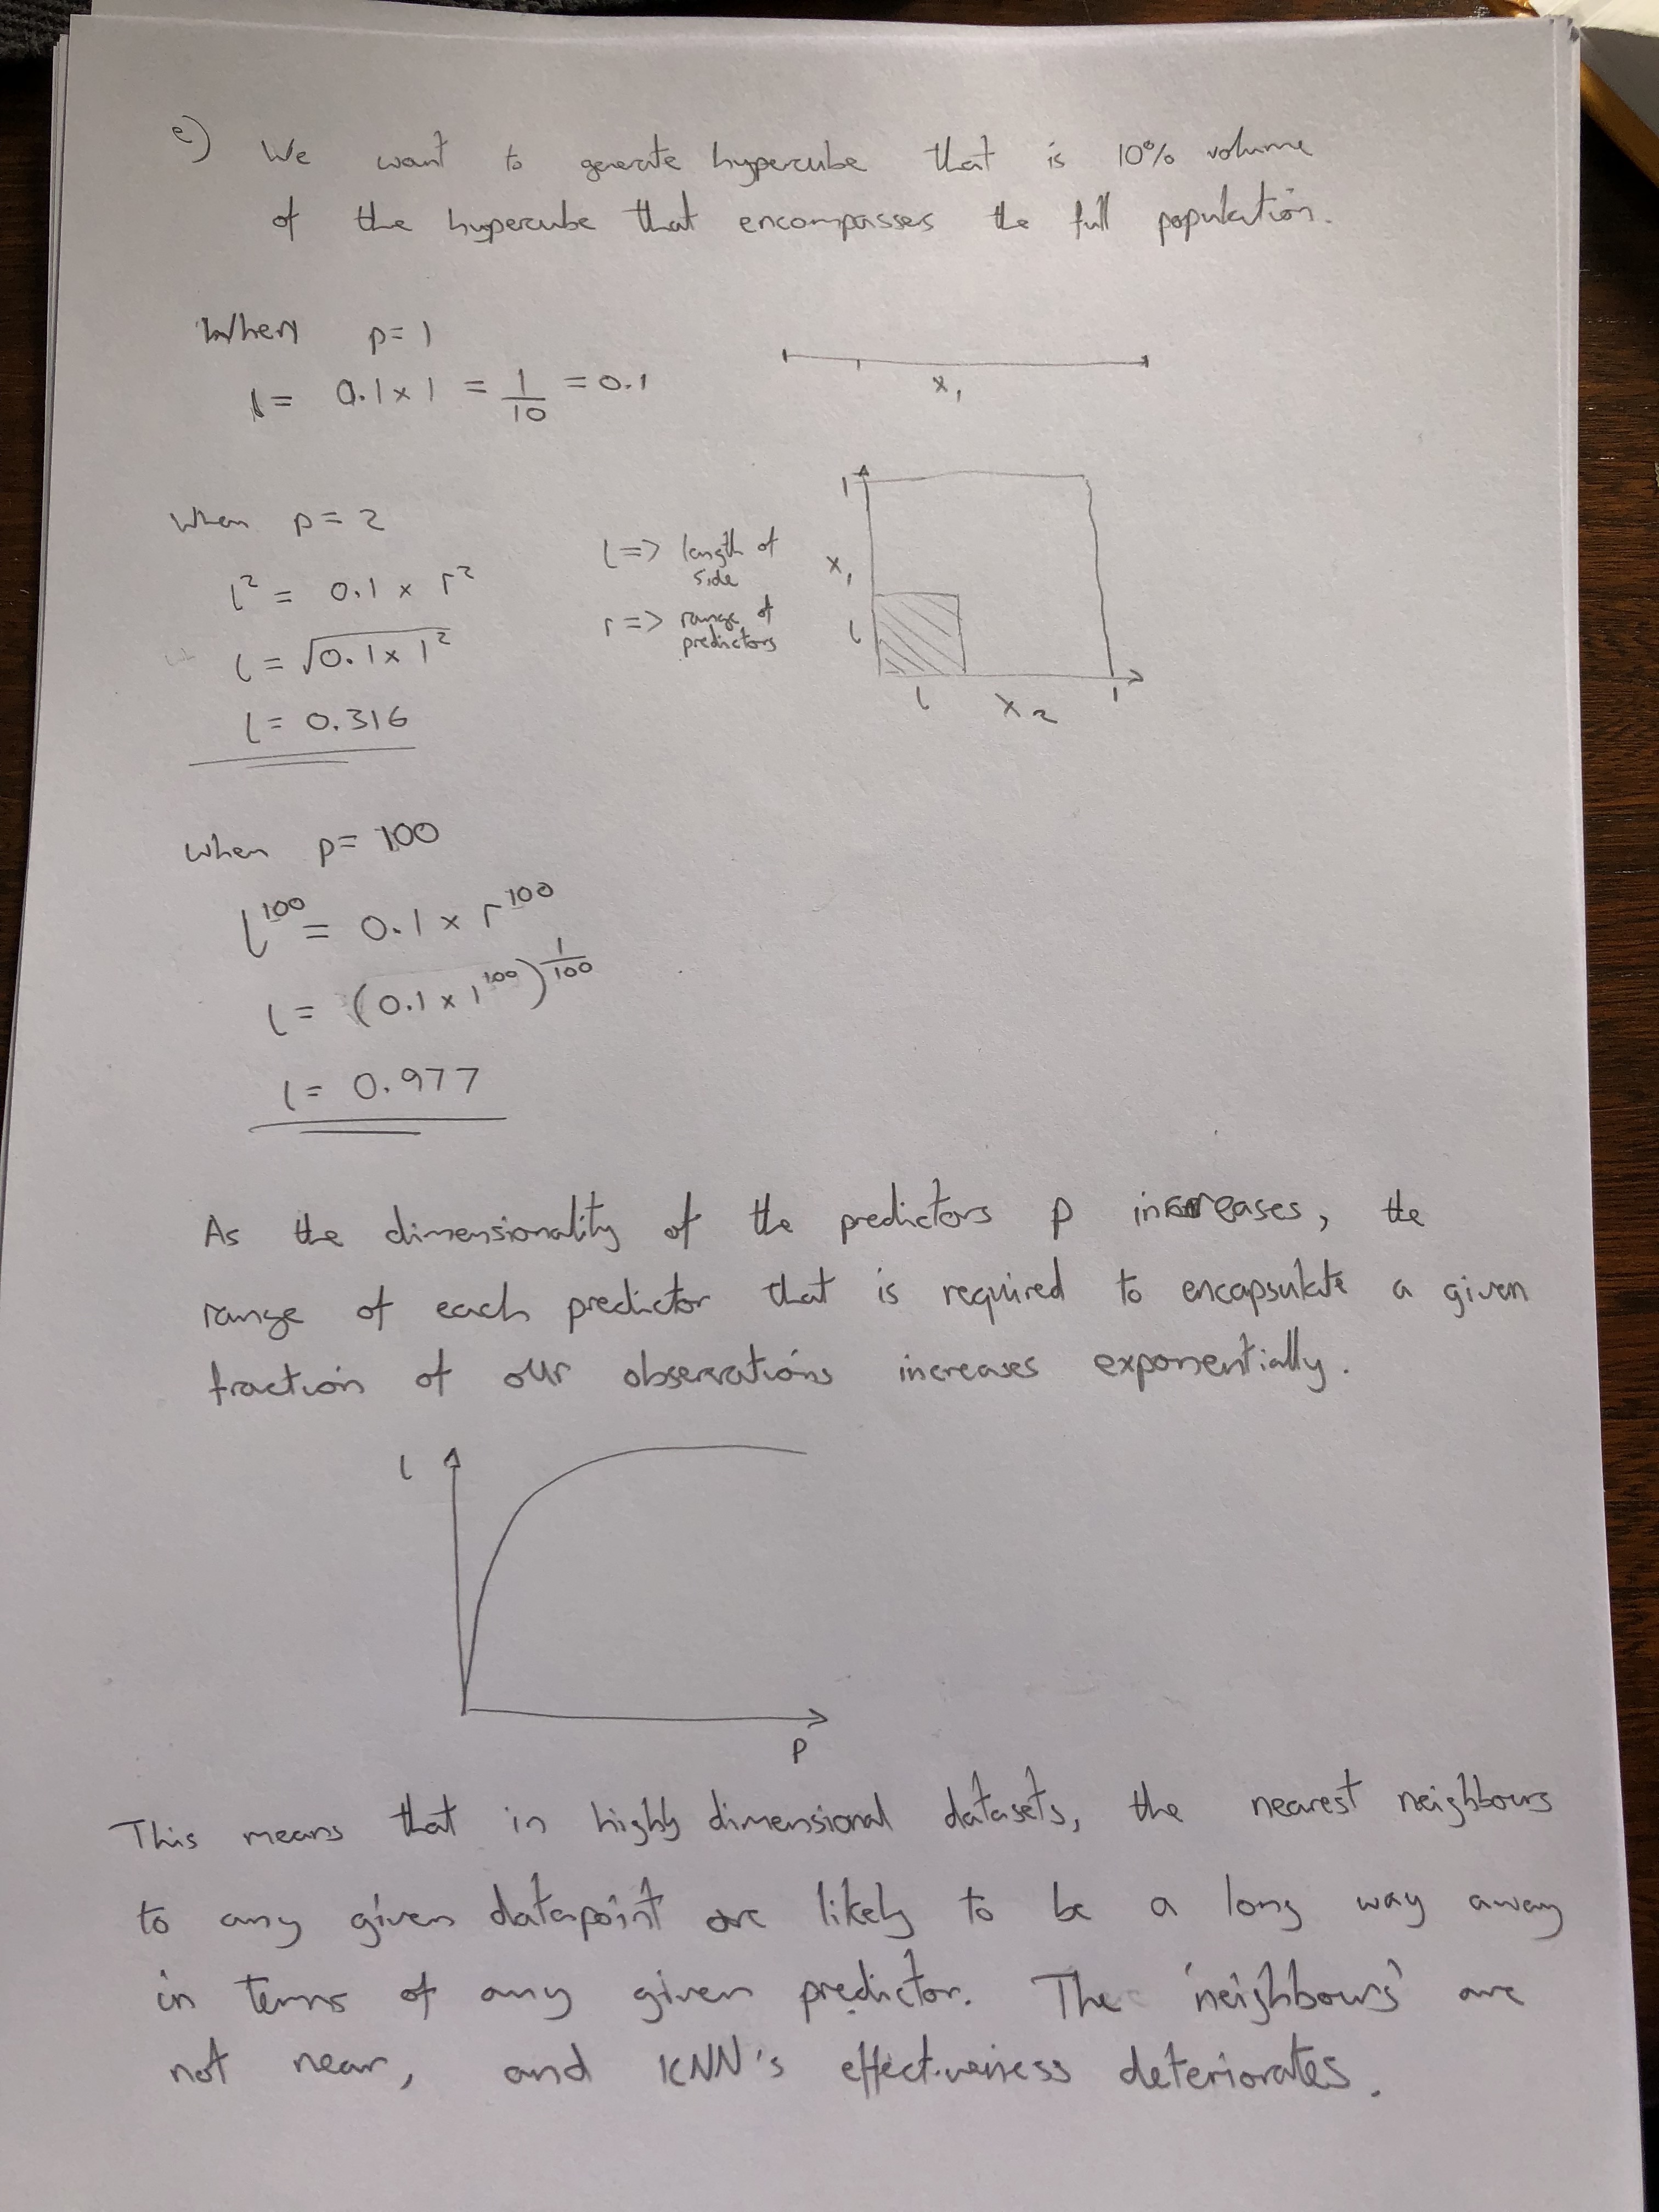 e) We want to generate hypercube that is 10% volume
of the hypercube that encompasses the full population.
When p = 1
l = 0.1 × 1 = 1/10 = 0.1
x₁
When p = 2
l² = 0.1 × r²
l = √(0.1 × 1²)
l = 0.316
l => length of
side
r => range of
predictors
1
x₁
l
l
x₂
1
When p = 100
l¹⁰⁰ = 0.1 × r¹⁰⁰
l = (0.1 × 1¹⁰⁰)^(1/100)
l = 0.977
As the dimensionality of the predictors p increases, the
range of each predictor that is required to encapsulate a given
fraction of our observations increases exponentially.
l
p
This means that in highly dimensional datasets, the nearest neighbours
to any given datapoint are likely to be a long way away
in terms of any given predictor. The 'neighbours' are
not near, and KNN's effectiveness deteriorates.